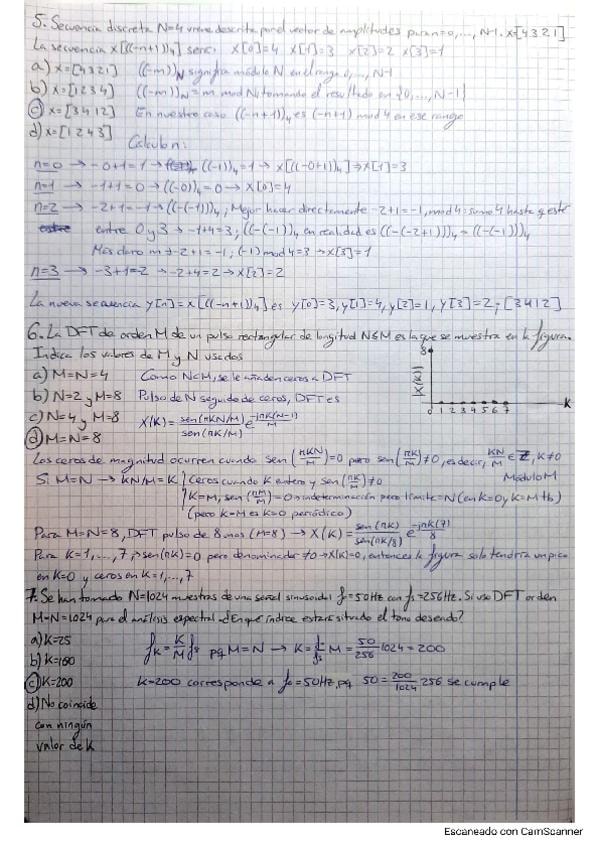 5. Secuencia discreta N=4 viene descrita por el vector de amplitudes para n=0,...,N-1. x=[4 3 2 1]
La secuencia x[((-n+1))₄] sería: x[0]=4 x[1]=3 x[2]=2 x[3]=1
a) x=[4 3 2 1] ((-m))N significa módulo N en el rango 0,...,N-1
b) x=[1 2 3 4] ((-m))N = m mod N, tomando el resultado en {0,...,N-1}
c) x=[3 4 1 2] En nuestro caso ((-n+1))₄ es (-n+1) mod 4 en ese rango
d) x=[1 2 4 3] Calculo n:
n=0 → -0+1=1 → ((-1))₄=1 → x[((-0+1))₄] → x[1]=3
n=1 → -1+1=0 → ((-0))₄=0 → x[0]=4
n=2 → -2+1=-1 → ((-(-1)))₄, Mejor hacer directamente -2+1=-1, mod 4: sumo 4 hasta q esté
entre 0 y 3 → -1+4=3; ((-(-1))₄ en realidad es ((-(-2+1)))₄ = ((-(-1)))₄
Más claro m → -2+1=-1; (-1) mod 4=3 → x[3]=1
n=3 → -3+1=-2 → -2+4=2 → x[2]=2
La nueva secuencia y[n]=x[((-n+1))₄] es y[0]=3, y[1]=4, y[2]=1, y[3]=2 → [3 4 1 2]
6. La DFT de orden M de un pulso rectangular de longitud N≤M es la que se muestra en la figura.
Indica los valores de M y N usados
a) M=N=4 Como N<M, se le añaden ceros a DFT
b) N=2 y M=8 Pulso de N seguido de ceros, DFT es
c) N=4 y M=8 X(K) = sen(πKN/M)/sen(πK/M) e^(-jπK(N-1)/M)
d) M=N=8
|X(K)| 8 0 1 2 3 4 5 6 7 K
Los ceros de magnitud ocurren cuando sen(πKN/M)=0 pero sen(πK/M)≠0, es decir, KN/M ∈ Z, K≠0
Módulo M
Si M=N → KN/M=K Ceros cuando K entero y sen(πK/M)≠0
K=M, sen(πM/M)=0 → indeterminación pero límite=N (en K=0 y K=M tb)
(pero K=M es K=0 periódico)
Para M=N=8, DFT pulso de 8 unos (M=8) → X(K) = sen(πK)/sen(πK/8) e^(-jπK(7)/8)
Para K=1,...,7, sen(πK)=0 pero denominador ≠0 → X(K)=0, entonces la figura solo tendría un pico
en K=0 y ceros en K=1,...,7
7. Se han tomado N=1024 muestras de una señal sinusoidal f₀=50Hz con fs=256Hz. Si uso DFT orden
M=N=1024 para el análisis espectral ¿En qué índice estará situado el tono deseado?
a) K=25 fK = K/M fs pq M=N → K = f₀/fs M = 50/256 1024 = 200
b) K=100
c) K=200 K=200 corresponde a f₀=50Hz, pq 50 = 200/1024 256 se cumple
d) No coincide
con ningún
valor de K
Escaneado con CamScanner